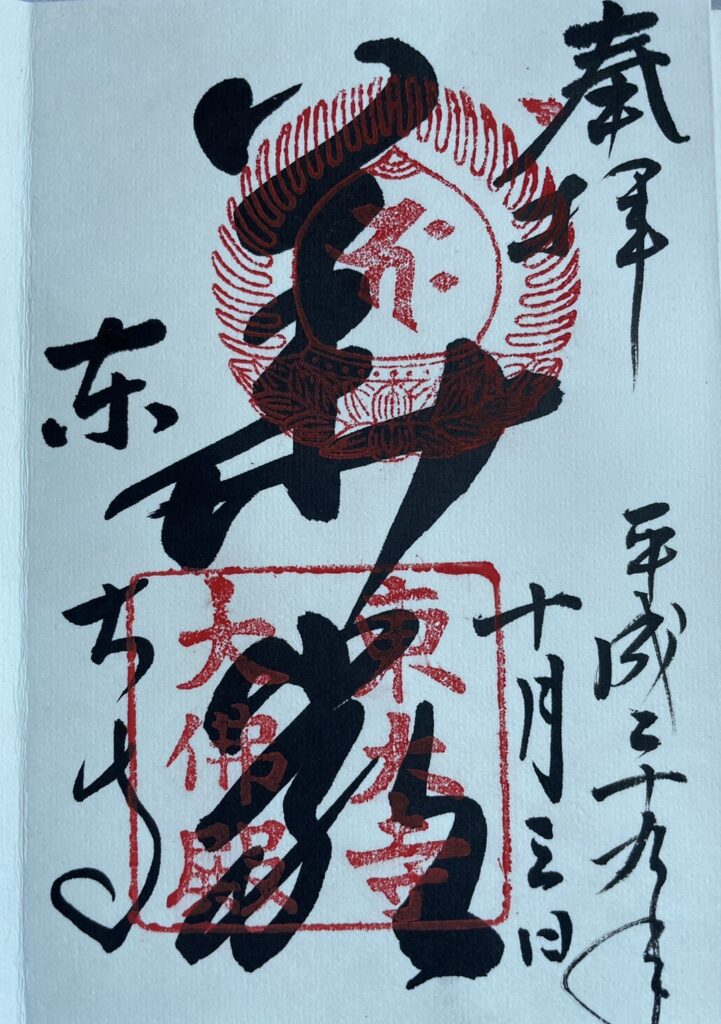 奉拝
平成二十九年
十月三日
華厳
東大寺
大佛殿
東大寺